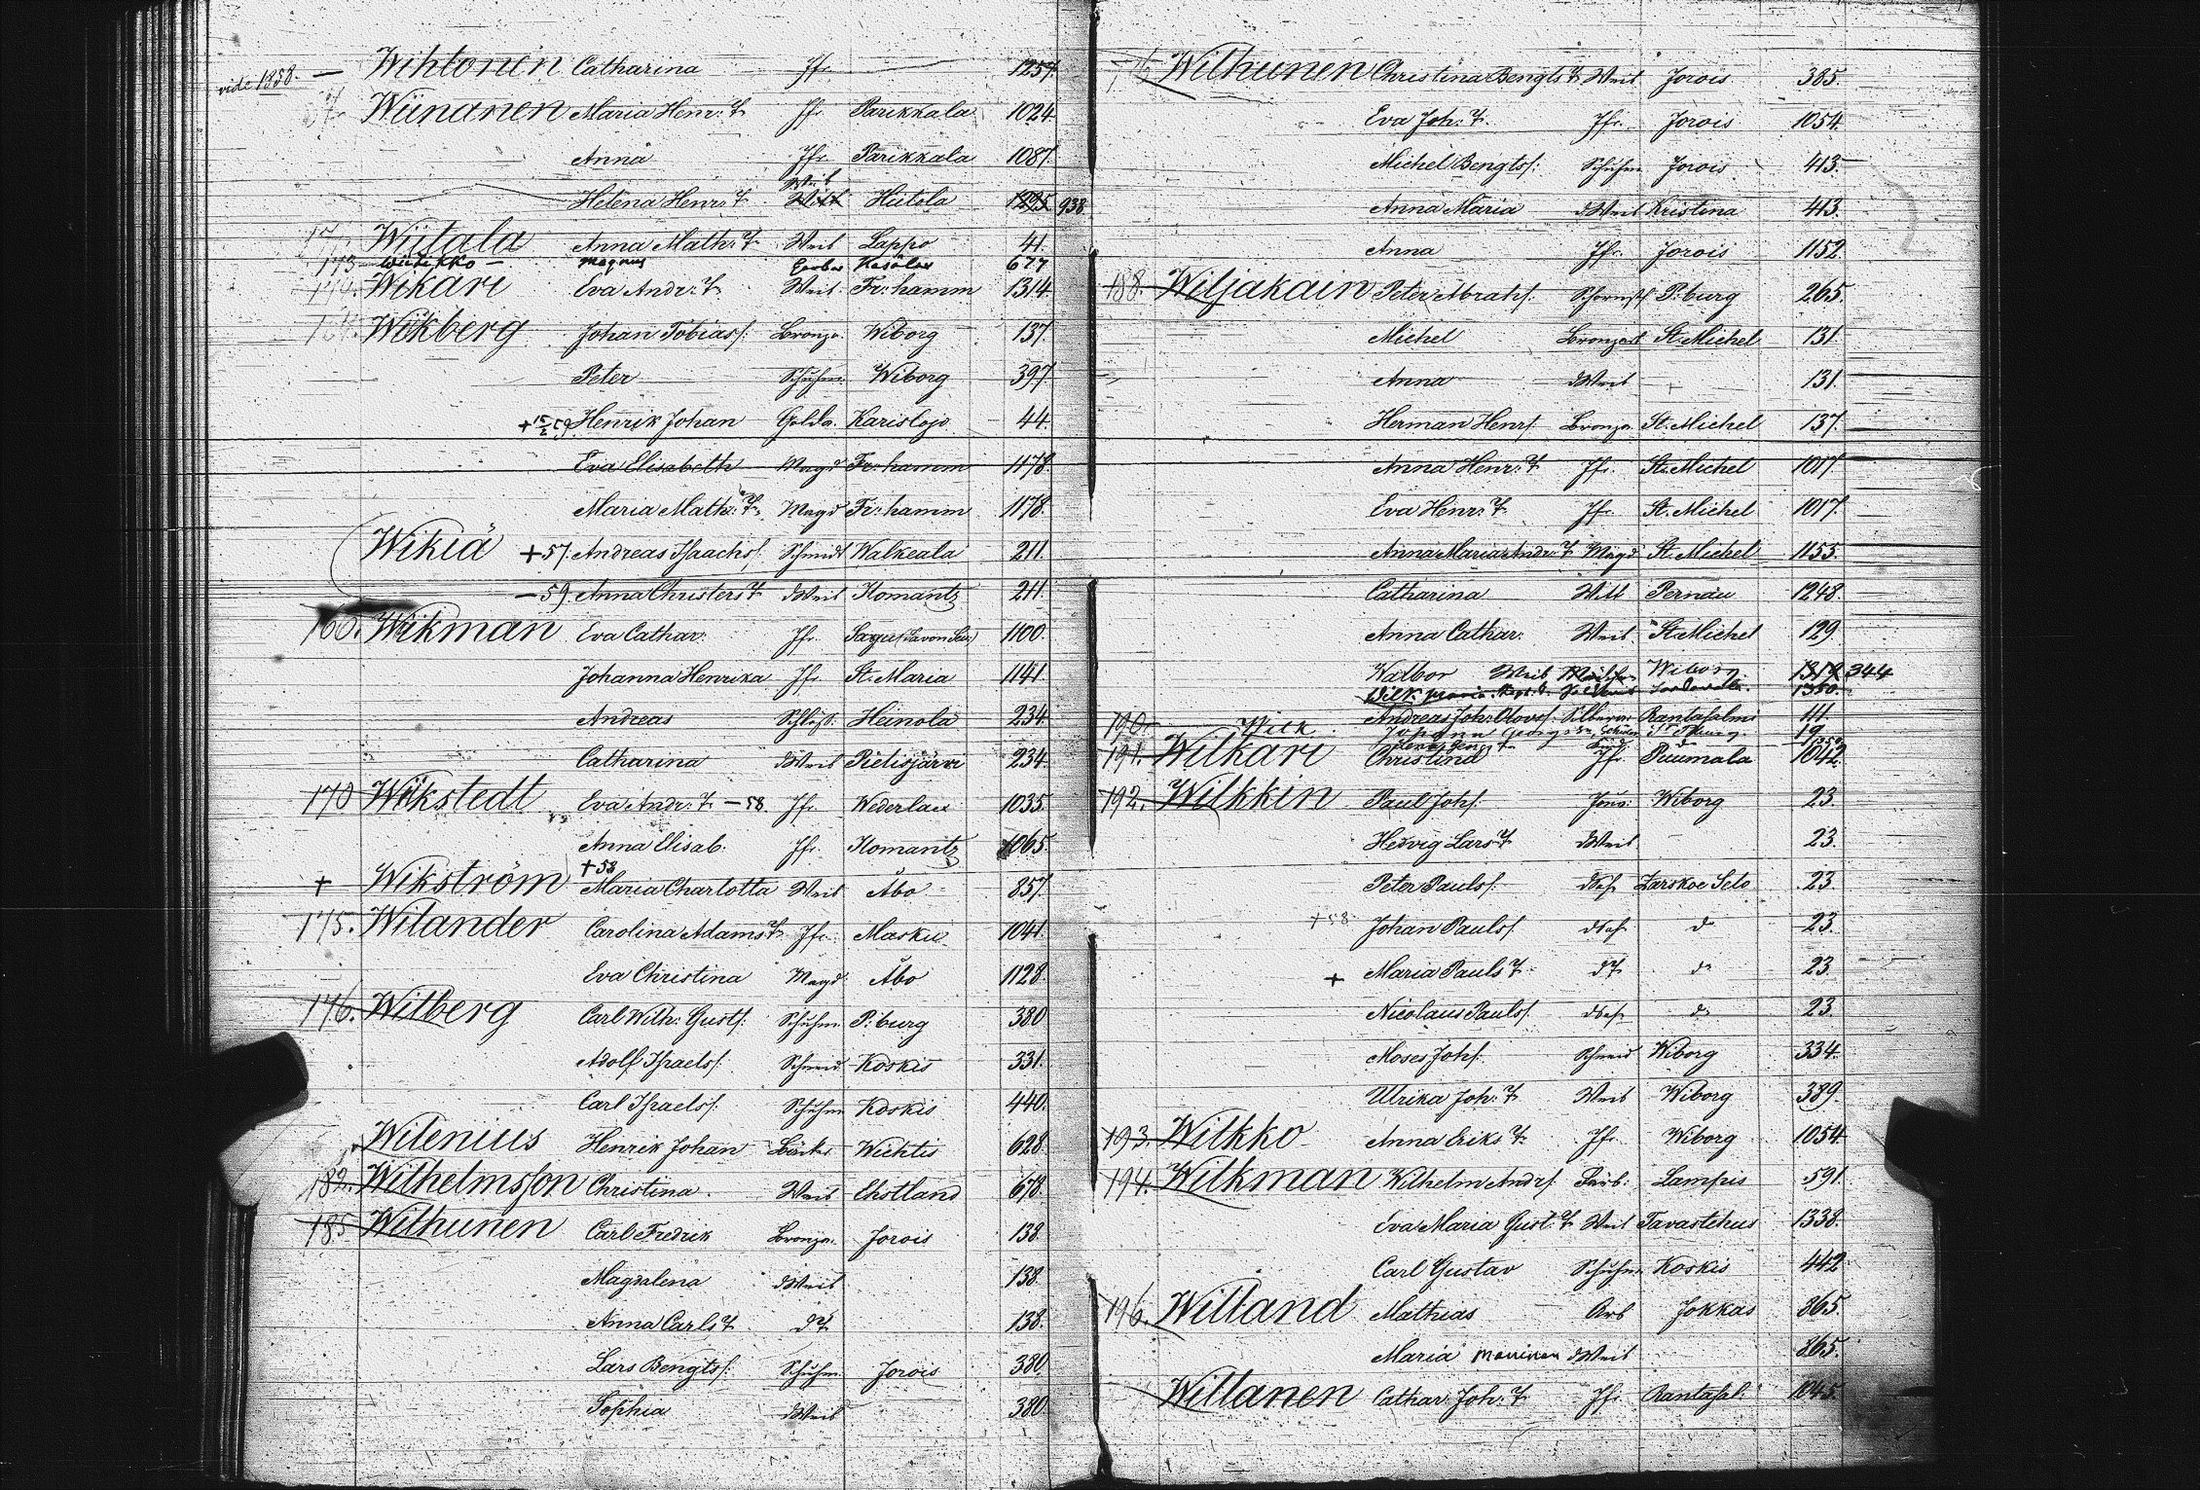 vide 1858. — Wihtonen Catharina Jfr. — 1257.
Wiinanen Maria Henr: T. Jfr. Parikkala 1024.
Anna Jfr. Parikkala 1087.
Weib
Helena Henr: T. Hiitola 1295 938
Wiitala Anna Math: T. Weib Lappo 41.
173 Magnus Gerber 677
Wikari Eva Andr: T. Weib Fr: hamm 1314.
Wikberg Johan Tobiass: Bronza. Wiborg 137.
Peter Schuhm. Wiborg 397.
+ 15/2 59 Henrik Johan Golda. Karislojo 44.
Eva Elisabeth Magd Fr: hamm 1178.
Maria Math: T. Magd Fr: hamm 1178.
Wikiä + 57. Andreas Isaachs/. Schmidt Walkeala 211.
— 59. Anna Christers T. dWeib Ilomantz 211.
160. Wikman Eva Cathar: Jfr. 1100.
Johanna Henrika Jfr. St. Maria 1141.
Andreas Schloss. Heinola 234
Catharina dWeib Pielisjärvi 234
170 Wikstedt Eva Andr. T. — 58. Jfr. Wederlax 1035.
Anna Elisab. Jfr. Ilomantz 1065.
+ 58
+ Wikström Maria Charlotta Weib Åbo 857.
175. Wilander Carolina Adams T. Jfr. Masku 1041.
Eva Christina Magd Åbo 1128.
176. Wilberg Carl Wilh: Gusts/: Schuhm. P: burg 380
Adolf Israels/. Schneid Koskis 331.
Carl Israels/. Schuhm Koskis 440.
Wilenius Henrik Johan Bäcker Wichtis 628.
182. Wilhelmsson Christina. Weib Ehstland 678.
185 Wilhunen Carl Fredrik Bronza. Jorois 138.
Magdalena dWeib 138.
Anna Carls T. dT 138.
Lars Bengts/: Schuhm. Jorois 380.
Sophia dWeib 380.
Wilhunen Christina Bengts T. Weib Jorois 385.
Eva Joh: T. Jfr. Jorois 1054.
Michel Bengts/: Schuhm Jorois 413.
Anna Maria dWeib Kristina 413.
Anna Jfr. Jorois 1152.
188. Wiljakain Peter Abrahs/. Schornst P: burg 265.
Michel Bronzarb St. Michel 131.
Anna dWeib 131.
Herman Henrs/ Bronza St. Michel 137.
Anna Henr: T. Jfr. St. Michel 1017.
Eva Henr: T. Jfr. St. Michel 1017.
Anna Maria Andr: T. Magd St. Michel 1155.
Catharina Witt Pernau 1248.
Anna Cathar: Weib St. Michel 129
Walbor Weib Wiborg 1319 344
Wilk Maria 1360.
190. Wilk Andreas Joh: Olovs/. Silberar Rantasalmi 11
Johann Georgs 19
191. Wilkari Christina Jfr. Puumala 1042.
192. Wilkkin Paul Johs/. Wiborg 23.
Hedvig Lars T. dWeib 23.
Peter Pauls/. Zarskoe Selo 23.
+ 58 Johan Pauls/. d 23.
+ Maria Pauls T. dT d 23.
Nicolaus Pauls/. d 23.
Moses Johs/. Schneid Wiborg 334.
Ulrika Joh: T. Weib Wiborg 389.
193. Wilkko Anna Eriks T. Jfr. Wiborg 1054.
194. Wilkman Wilhelm Andrs/. Färb: Lampis 591.
Eva Maria Gust. T. Weib Tavastehus 1338.
Carl Gustav Schuhm Koskis 442
196. Willand Mathias Arb Jokkas 865.
Maria dWeib 865.
Willanen Cathar: Joh: T. Jfr. Rantasal. 1045.